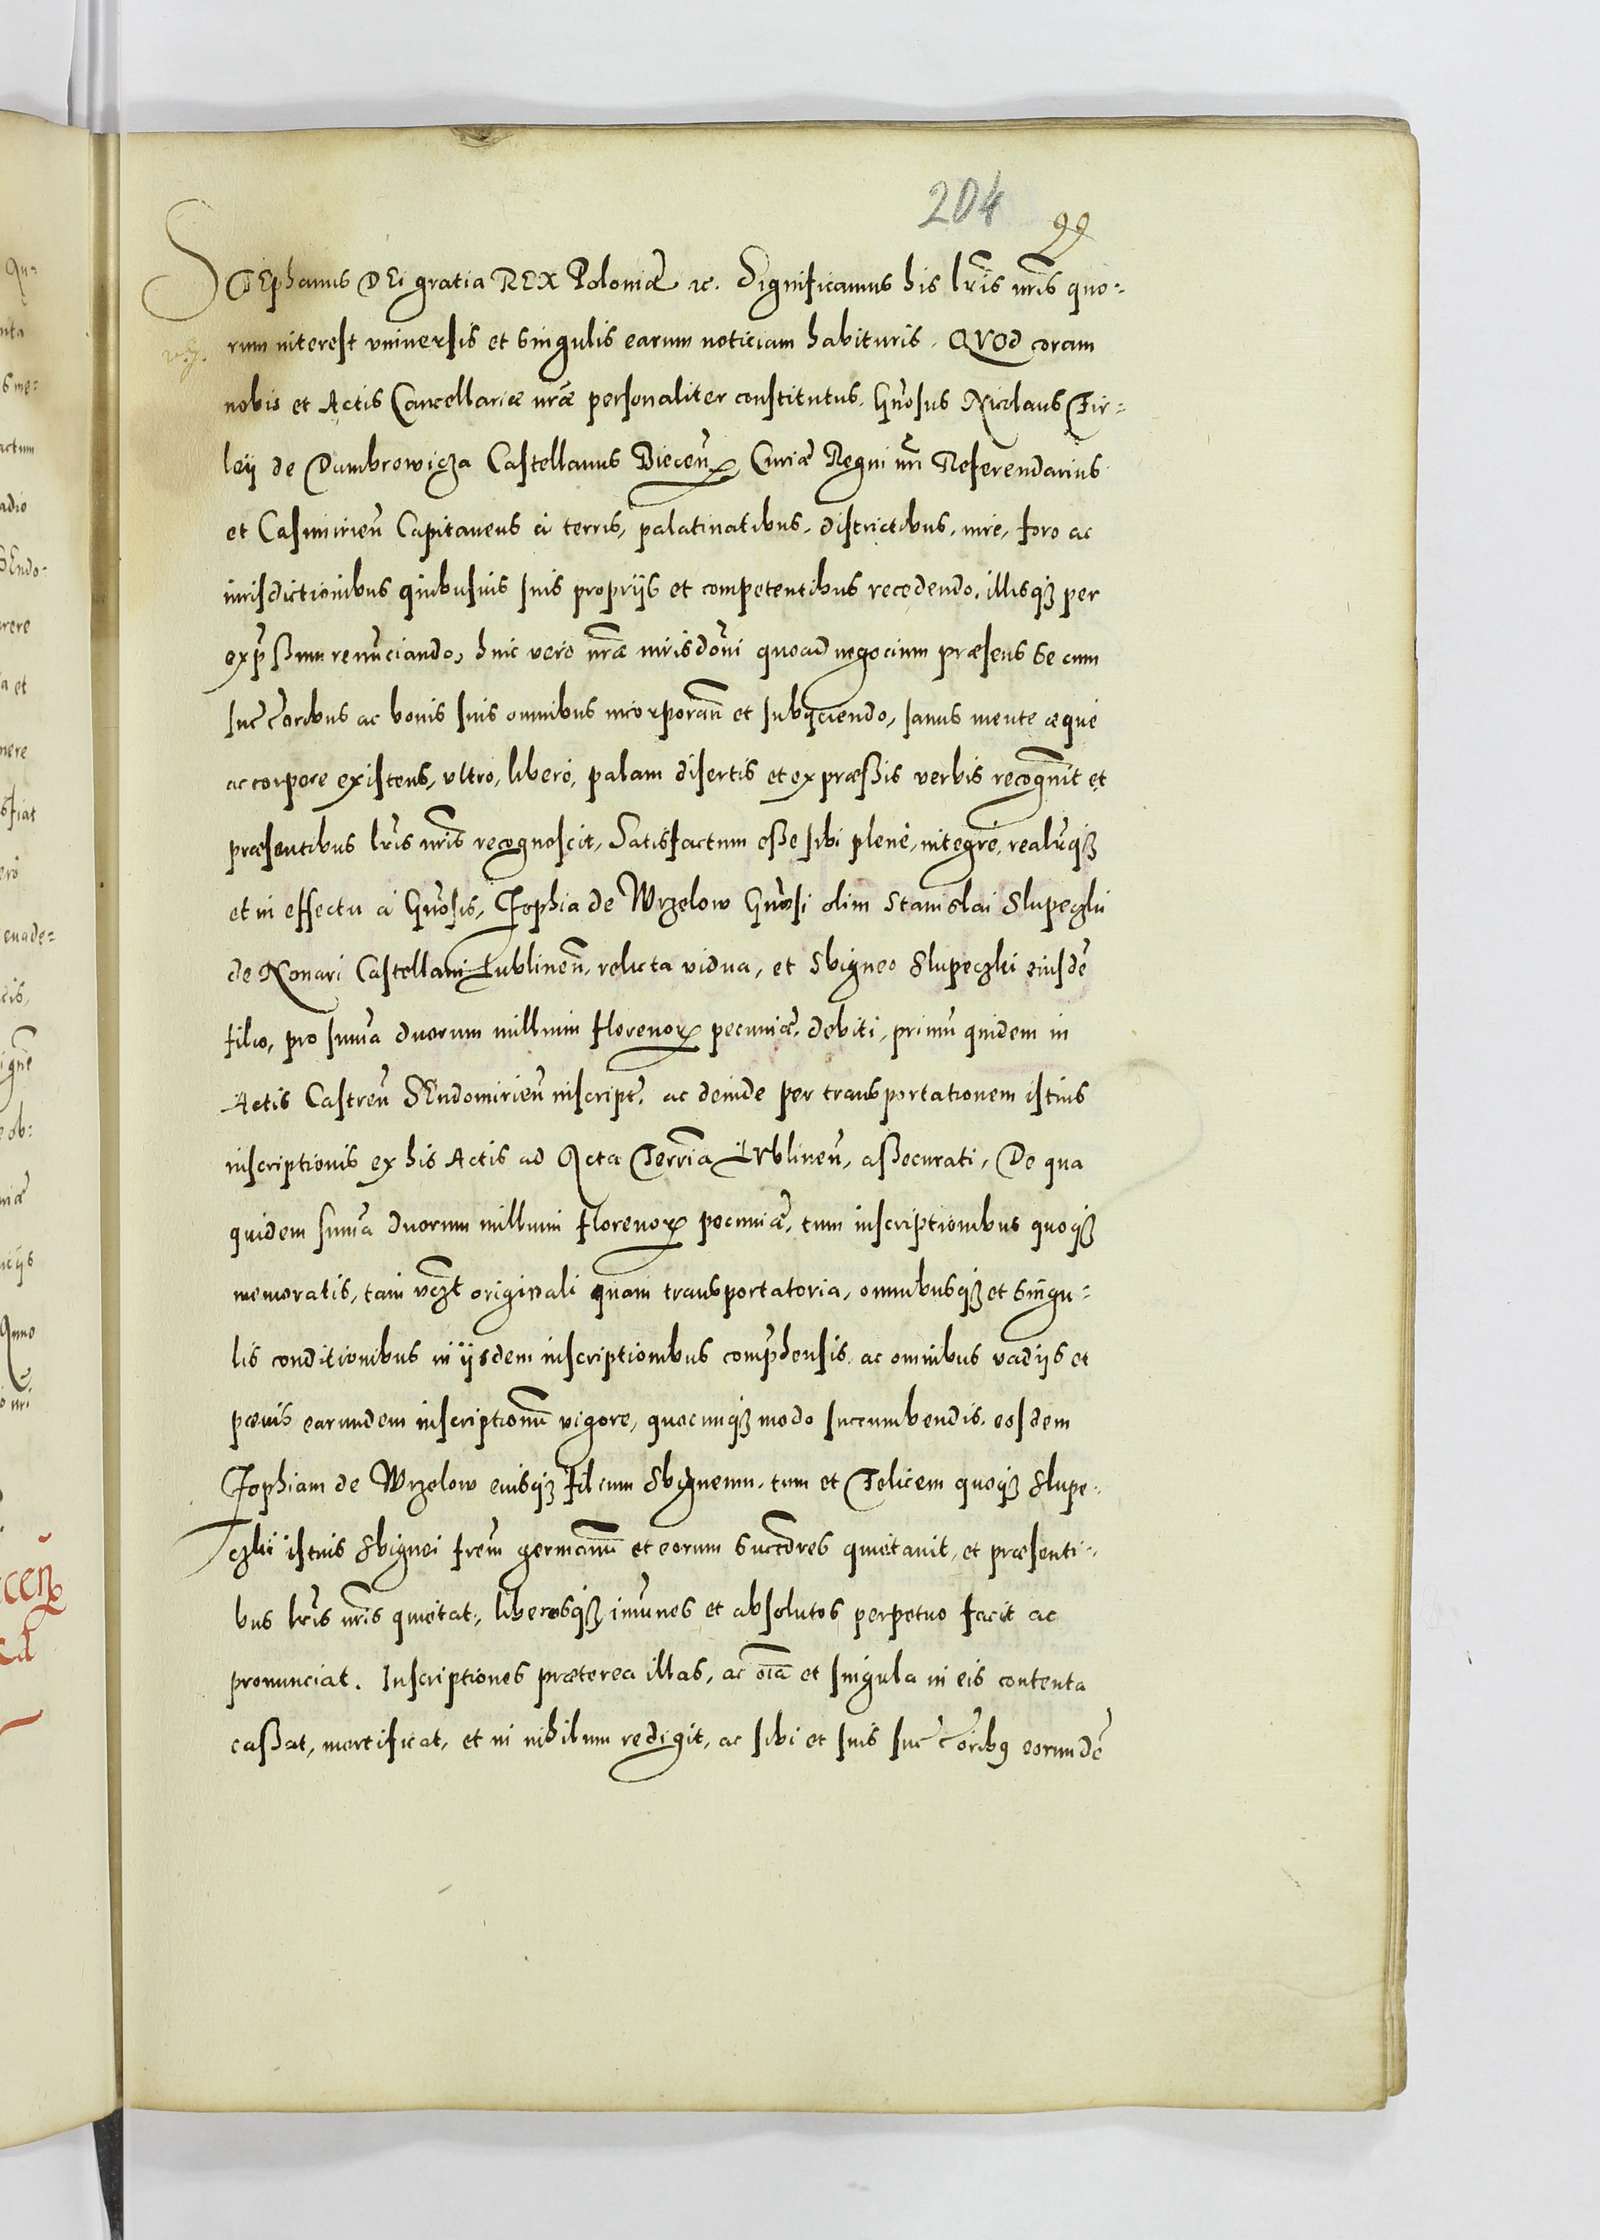 204
99
STEphanus DEi gratia REX Poloniæ etc. Significamus his lrīs nrīs quo=
rum interest vniuersis et singulis earum noticiam habituris. QVOd coram
nobis et Actis Cancellariæ nrāe personaliter constitutus. Gnōsus Nicolaus Fir=
leij de Dambrowicza Castellanus Biecen̄, Curiæ Regni nrī Referendarius
et Casimirien̄ Capitaneus à terris, palatinatibus, districtibus, iure, foro ac
iurisdictionibus quibusuis suis proprijs et competentibus recedendo, illisqꝫ per
exp̄ßum renunciando, huic vero nrāe iurisdōni quoad negocium præsens se cum
succ̄oribus ac bonis suis omnibus incorporan̄ et subijciendo, sanus mente æque
ac corpore existens, vltro, liberè, palam disertis et expræßis verbis recognōuit et
præsentibus lrīs nrīs recognoscit, Satisfactum eße sibi plenè, integrè, realr̄qꝫ
et in effectu à Gnōsis, Zophia de Wrzelow Gnōsi olim Stanislai Slupeczki
de Konari Castellani Lublinen̄, relicta vidua, et Sbigneo Slupeczki eiusdē
filio, pro sum̄a duorum millium florenorꝝ pecuniæ, debiti, primū quidem in
Actis Castren̄ SEndomirien̄ inscript̄, ac deinde per transportationem istius
inscriptionis ex his Actis ad Acta Terrīa LVblinen̄, aßecurati, De qua
quidem sum̄a duorum millium florenorꝝ pecuniæ, tum inscriptionibus quoqꝫ
memoratis, tam vcꝫt originali quam transportatoria, omnibusqꝫ et singu=
lis conditionibus in ijsdem inscriptionibus comprehensis, ac omnibus vadijs et
pœnis earundem inscriptionū vigore, quocunqꝫ modo succumbendis, eosdem
Zophiam de Wrzelow eiusqꝫ filium Sbigneum, tum et Felicem quoqꝫ Slupe=
czki istius Sbignei frēm germanum et eorum succ̄ores quietauit, et præsenti=
bus lrīs nrīs quietat, liberosqꝫ, im̄unes et absolutos perpetuo facit ac
pronunciat. Inscriptiones præterea illas, ac oīa et singula in eis contenta
caßat, mortificat, et in nihilum redigit, ac sibi et suis succ̄oribꝰ eorundē